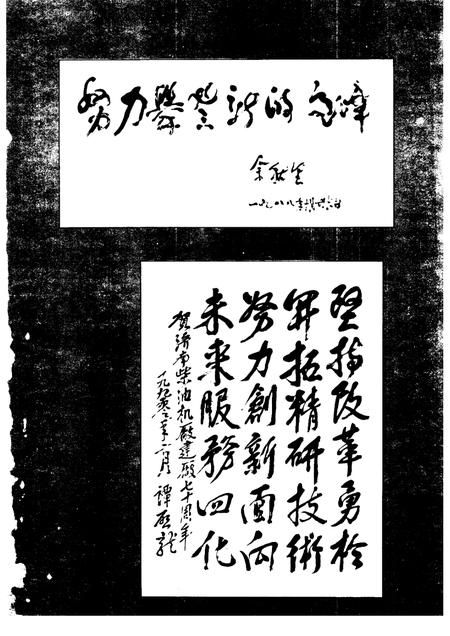 努力攀登新的高峰
余秋里
一九八八年
坚持改革勇於
开拓精研技術
努力創新面向
未来服務四化
贺济南柴油机厰建厰七十周年
一九九〇年 月 譚启龍